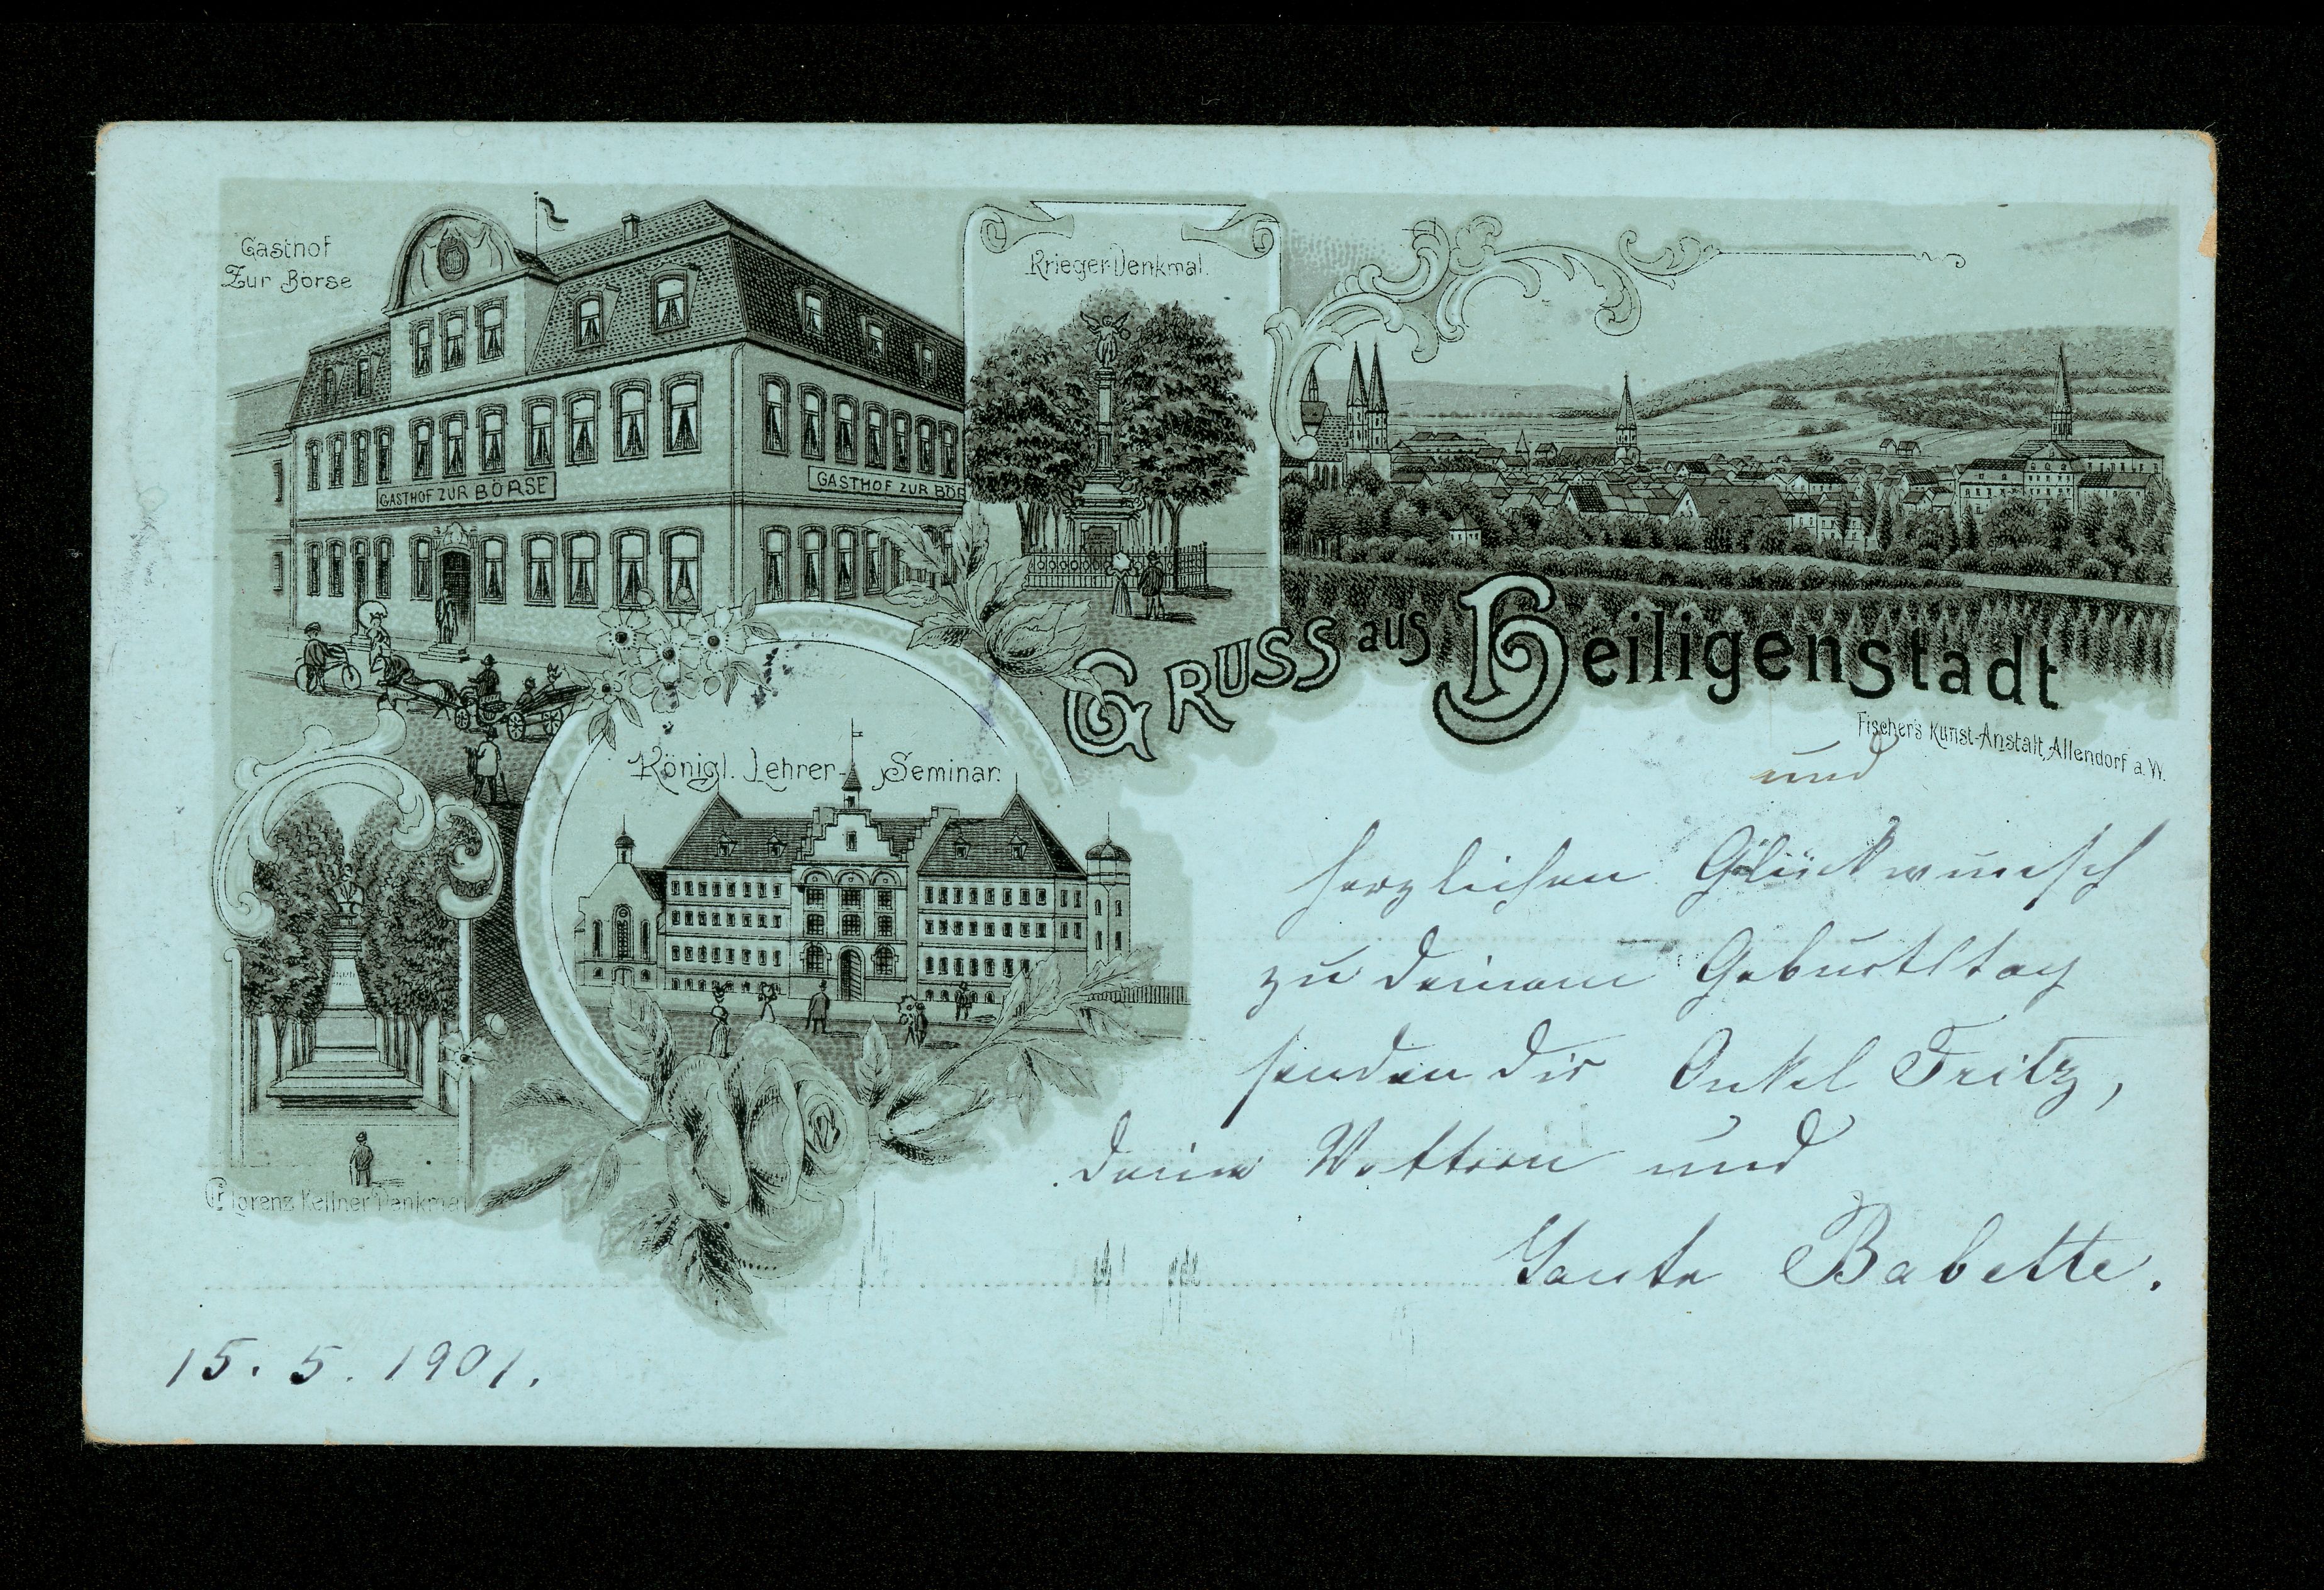 Gasthof
Zur Börse
GASTHOF ZUR BÖRSE
GASTHOF ZUR BÖR
Krieger-Denkmal.
GRUSS aus Heiligenstadt
Fischer's Kunst-Anstalt, Allendorf a. W.
Königl. Lehrer-Seminar.
Lorenz Kellner Denkmal
und
herzlichen Glückwunsch
zu deinem Geburtstag
senden dir Onkel Fritz,
deine Vettern und
Tante Babette.
15. 5. 1901.